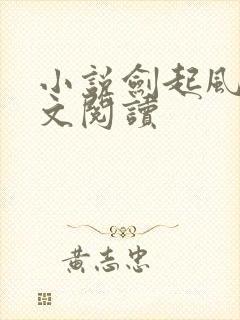 小説劍起風
文閱讀
黃志忠